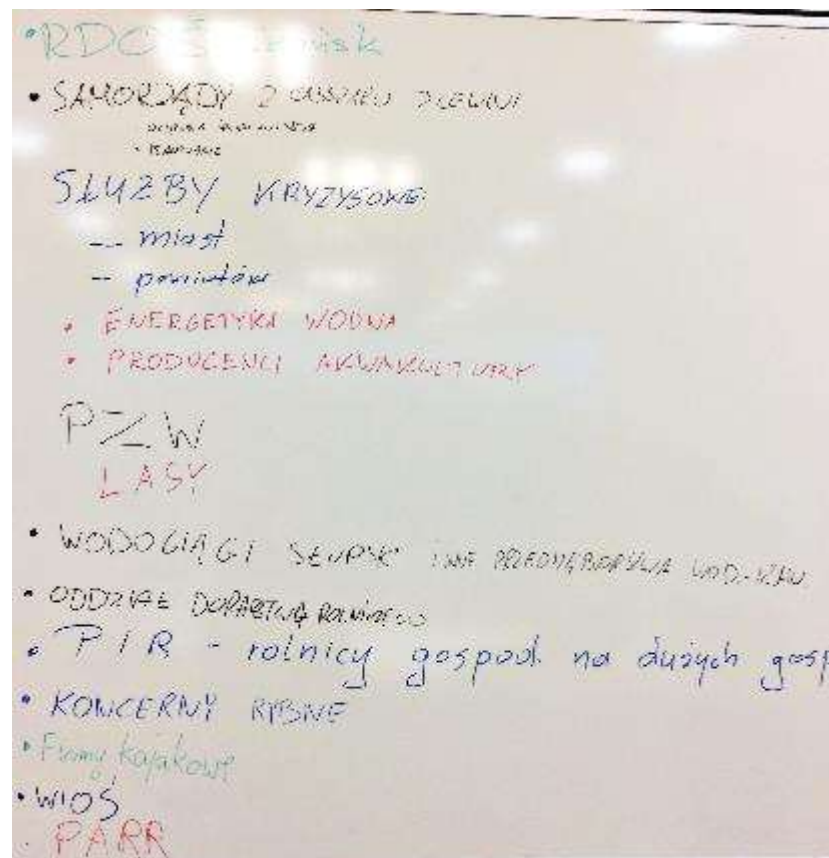 • RDOŚ
• SAMORZĄDY Z OBSZARU ZLEWNI
SŁUŻBY KRYZYSOWE
— miast
— powiatów
• ENERGETYKA WODNA
• PRODUCENCI AKWAKULTURY
PZW
LASY
• WODOCIĄGI SŁUPSK I INNE PRZEDSIĘBIORSTWA WOD-KAN
• ODDZIAŁ DORADZTWA ROLNICZEGO
• PIR - rolnicy gospod. na dużych gosp
• KONCERNY RYBNE
• Firmy kajakowe
• WIOŚ
• PARR